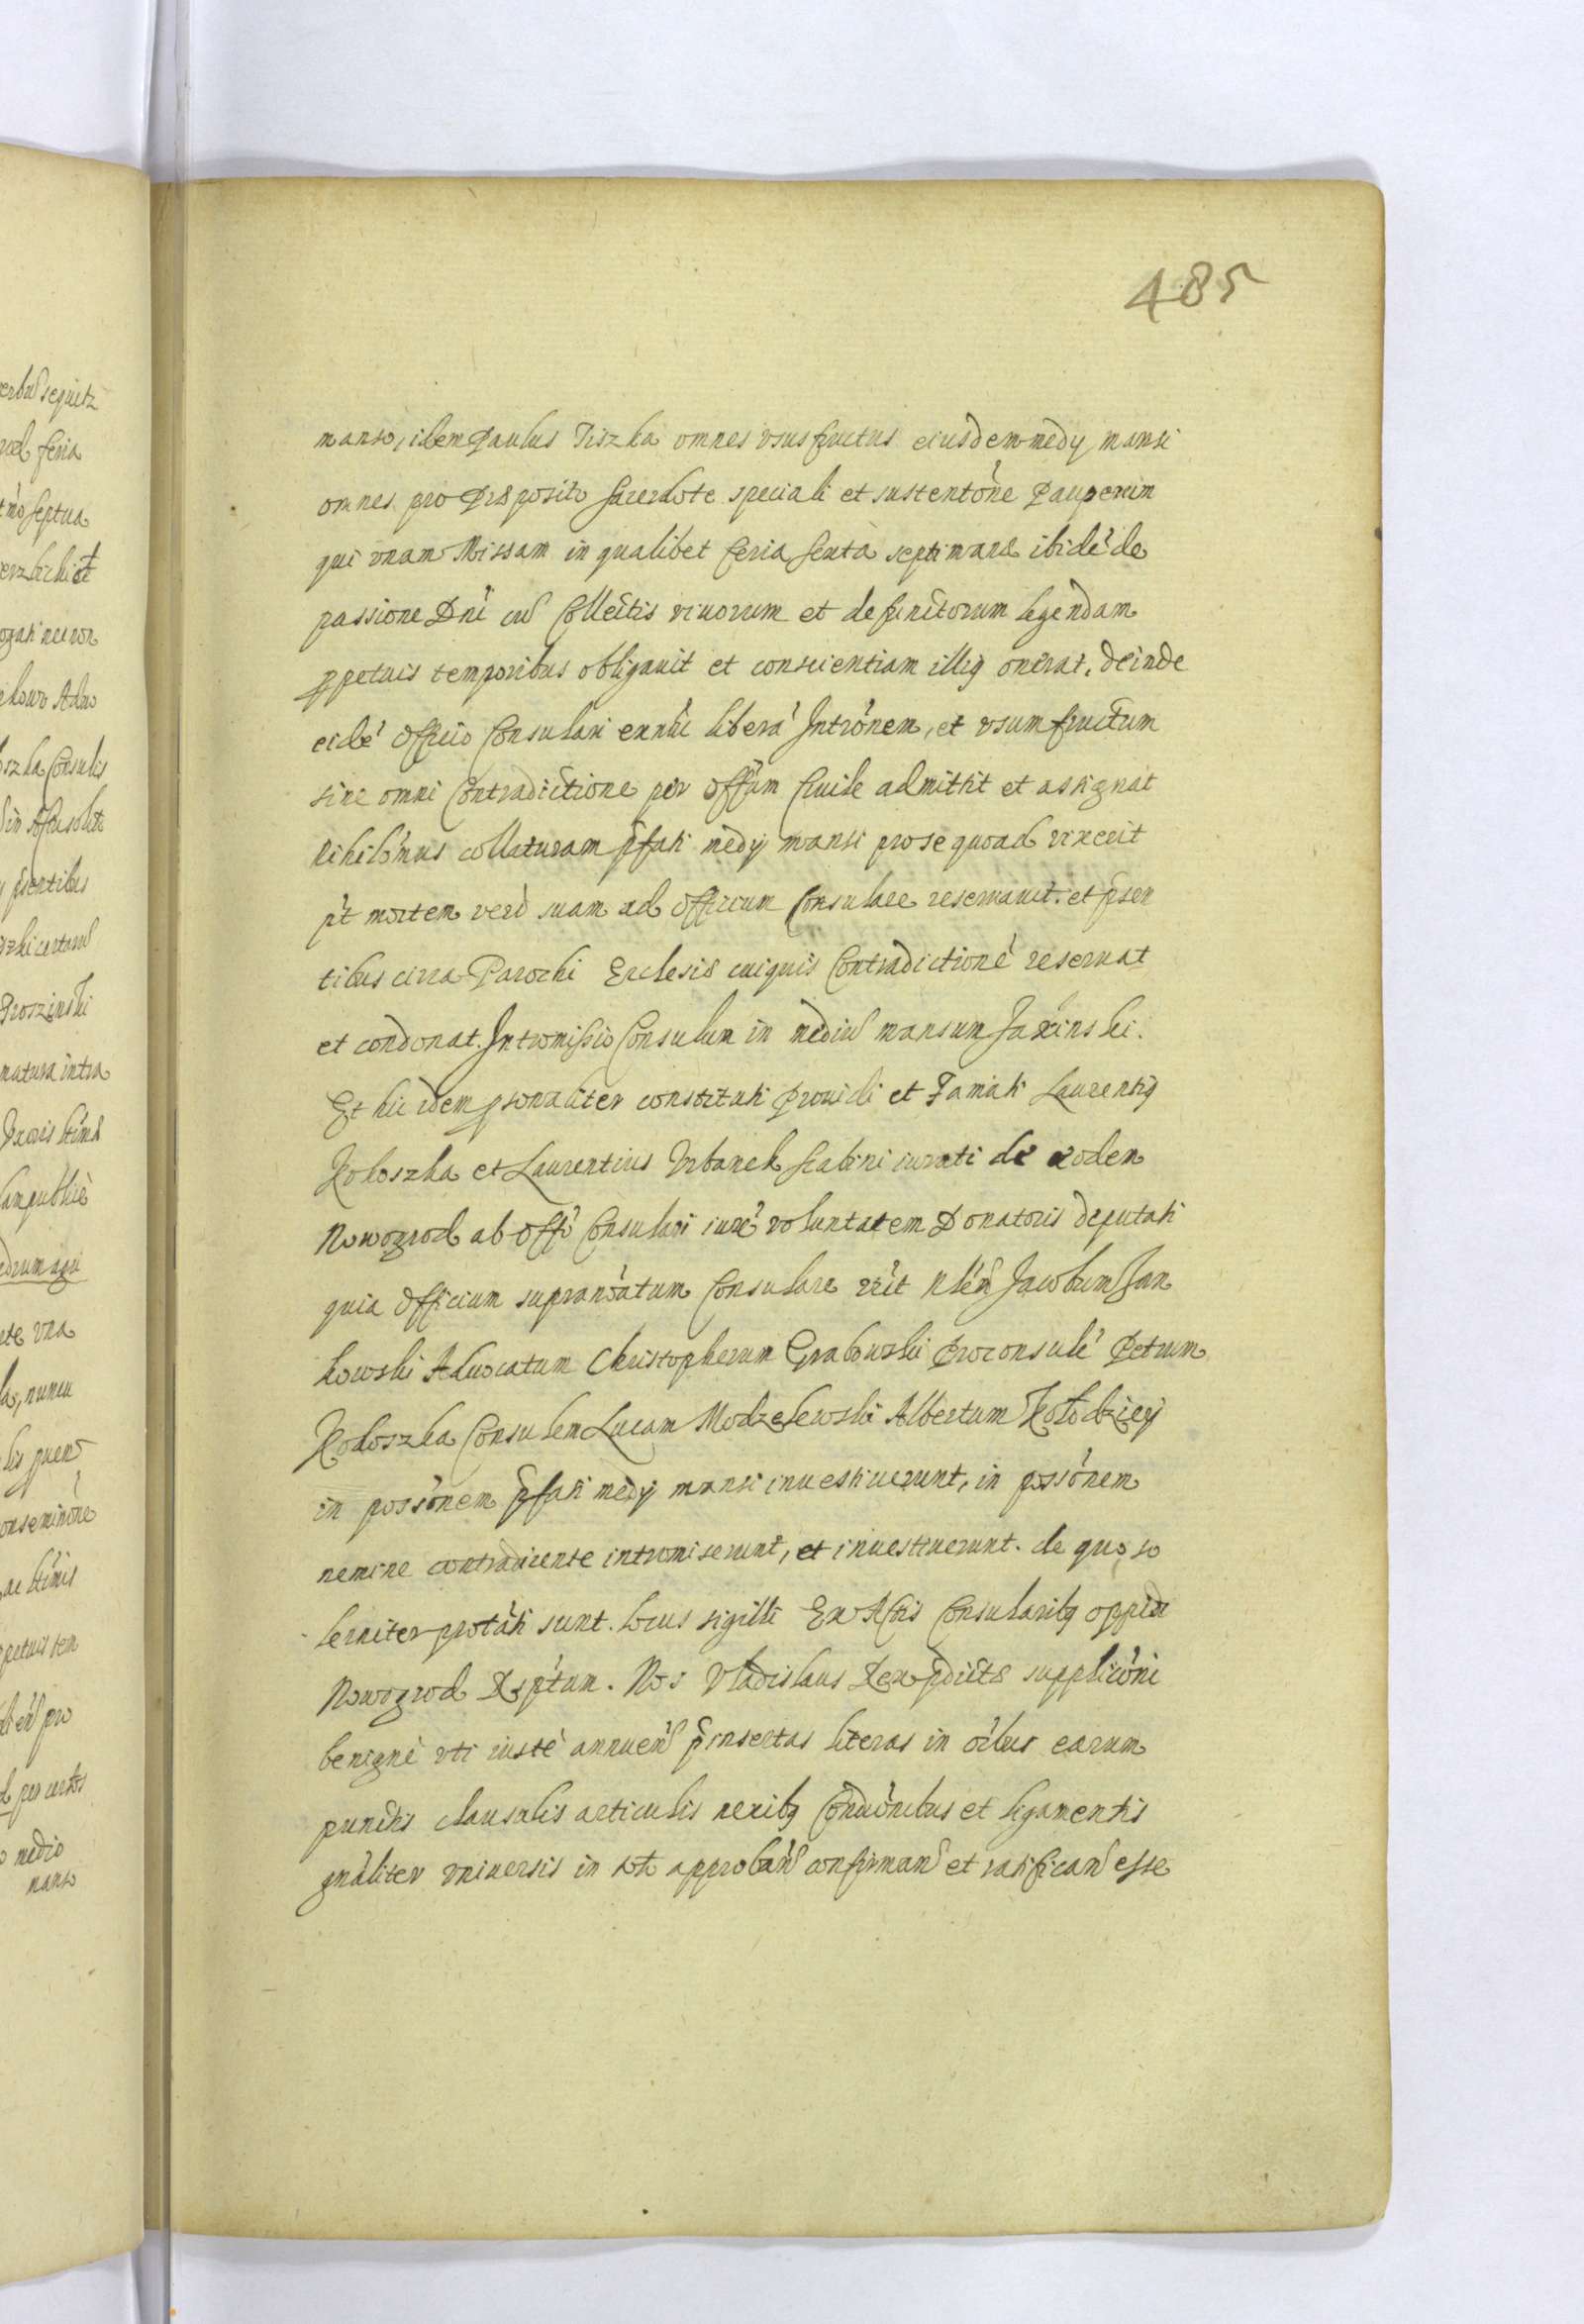 485
manso, idem Paulus Tiszka omnes vsusfructus eiusdem medy mansi
omnes pro Præposito sacerdote speciali et sustentõne Pauperum
qui vnam Missam in qualibet feria sexta septimanæ ibidẽ de
passione Dni cũ Collectis viuorum et defunctorum legendam
ppetuis temporibus obligauit et conscientiam illiq onerat, deinde
eidẽ Officio Consulari exnũc liberã Intrõnem, et vsumfructum
sine omni Contradictione per Offũm Ciuile admittit et assignat
Nihilõmus collaturam pfati medy mansi pro se quoad vixerit
pt mortem verò suam ad Officium Consulare reseruauit. et psen
tibus circa Parochi Ecclesiæ cuiquis Contradictionẽ reseruat
et condonat. Intromissio Consulum in mediũ mansum Jaxinski.
Et hic idem psonaliter constituti Prouidi et Famati Laurentiq
Kokoszka et Laurentius Vrbanek scabini iurati de eoden
Nowogrod ab Offõ Consulari iuxẽ voluntatem Donatoris deputati
quia Officium supranõatum Consulare Jacobum Jan
kowski Aduocatum Christopherum Grabowski Proconsulẽ Petrum
Kokoszka Consulem Lucam Modzelewski Albertum Kołodzieij
in possõnem pfati medij mansi inuestiuerunt, in possõnem
nemine contradicente intromiserunt, et inuestiuerunt. de quo so
lenniter protãti sunt. locus sigilli Ex Actis Consularibq oppidi
Nowogrod Dsptum. Nos Vladislaus Rex pdictæ supplicõni
benignè vti iustè annuen pinsertas literas in oĩbus earum
punctis clausulis articulis nexibq Condiõnibus et ligamentis
gnãliter vniuersis in toto approban confirman et ratifican esse
erbũ sequitz
feria
septua
Consulis
psentibus
natura intra
vna
nuncu
petuis tem
pro
per certos
medio
manso